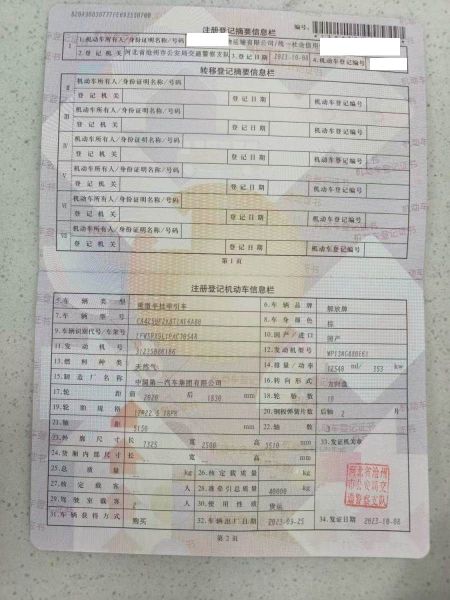 注册登记摘要信息栏
编号:
Ⅰ
1.机动车所有人/身份证明名称/号码
运输有限公司/统一社会信用
2.登记机关
河北省沧州市公安局交通警察支队
3.登记日期
2023-10-08
4.机动车登记编号
转移登记摘要信息栏
Ⅱ
机动车所有人/身份证明名称/号码
登记机关
登记日期
机动车登记编号
Ⅲ
机动车所有人/身份证明名称/号码
登记机关
登记日期
机动车登记编号
Ⅳ
机动车所有人/身份证明名称/号码
登记机关
登记日期
机动车登记编号
Ⅴ
机动车所有人/身份证明名称/号码
登记机关
登记日期
机动车登记编号
Ⅵ
机动车所有人/身份证明名称/号码
登记机关
登记日期
机动车登记编号
Ⅶ
机动车所有人/身份证明名称/号码
登记机关
登记日期
机动车登记编号
第1页
注册登记机动车信息栏
5.车辆类型 重型半挂牵引车 6.车辆品牌 解放牌
7.车辆型号 8.车身颜色 棕
9.车辆识别代号/车架号 10.国产/进口 国产
11.发动机号 12.发动机型号
13.燃料种类 天然气 14.排量/功率 12540 ml/ 353 kw
15.制造厂名称 中国第一汽车集团有限公司 16.转向形式 方向盘
17.轮距 前 2020 后 1830 mm 18.轮胎数 10
19.轮胎规格 20.钢板弹簧片数 后轴 2 片
21.轴距 mm 22.轴数
23.外廓尺寸 长 7325 宽 2500 高 3510 mm 33.发证机关章
24.货厢内部尺寸 长 宽 高 mm
25.总质量 kg 26.核定载质量 kg
27.核定载客 人 28.准牵引总质量 40000 kg
29.驾驶室载客 2 人 30.使用性质 货运
31.车辆获得方式 购买 32.车辆出厂日期 2023-09-25 34.发证日期 2023-10-08
河北省沧州
市公安局交
通警察支队
第2页